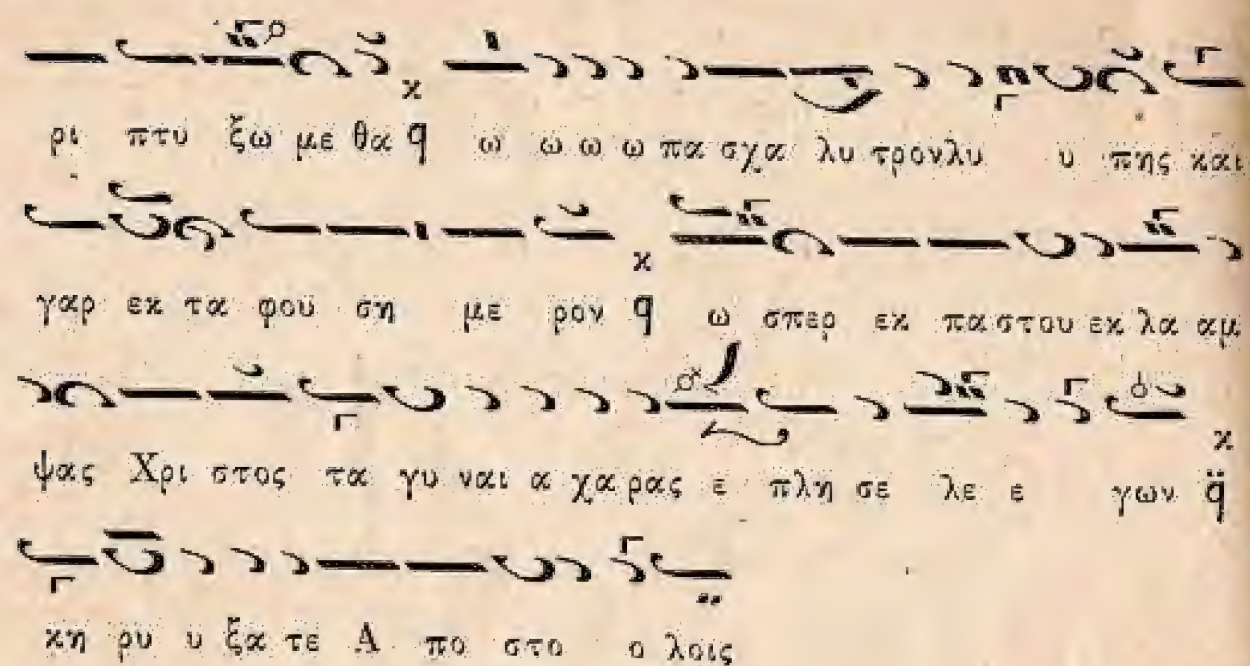 ρι πτυ ξω με θα q ω ω ω ω πα σχα λυ τρον λυ υ πης και
γαρ εκ τα φου ση με ρον q ω σπερ εκ πα στου εκ λα αμ
ψας Χρι στος τα γυ ναι α χα ρας ε πλη σε λε ε γων q̈
κη ρυ υ ξα τε Α πο στο ο λοις